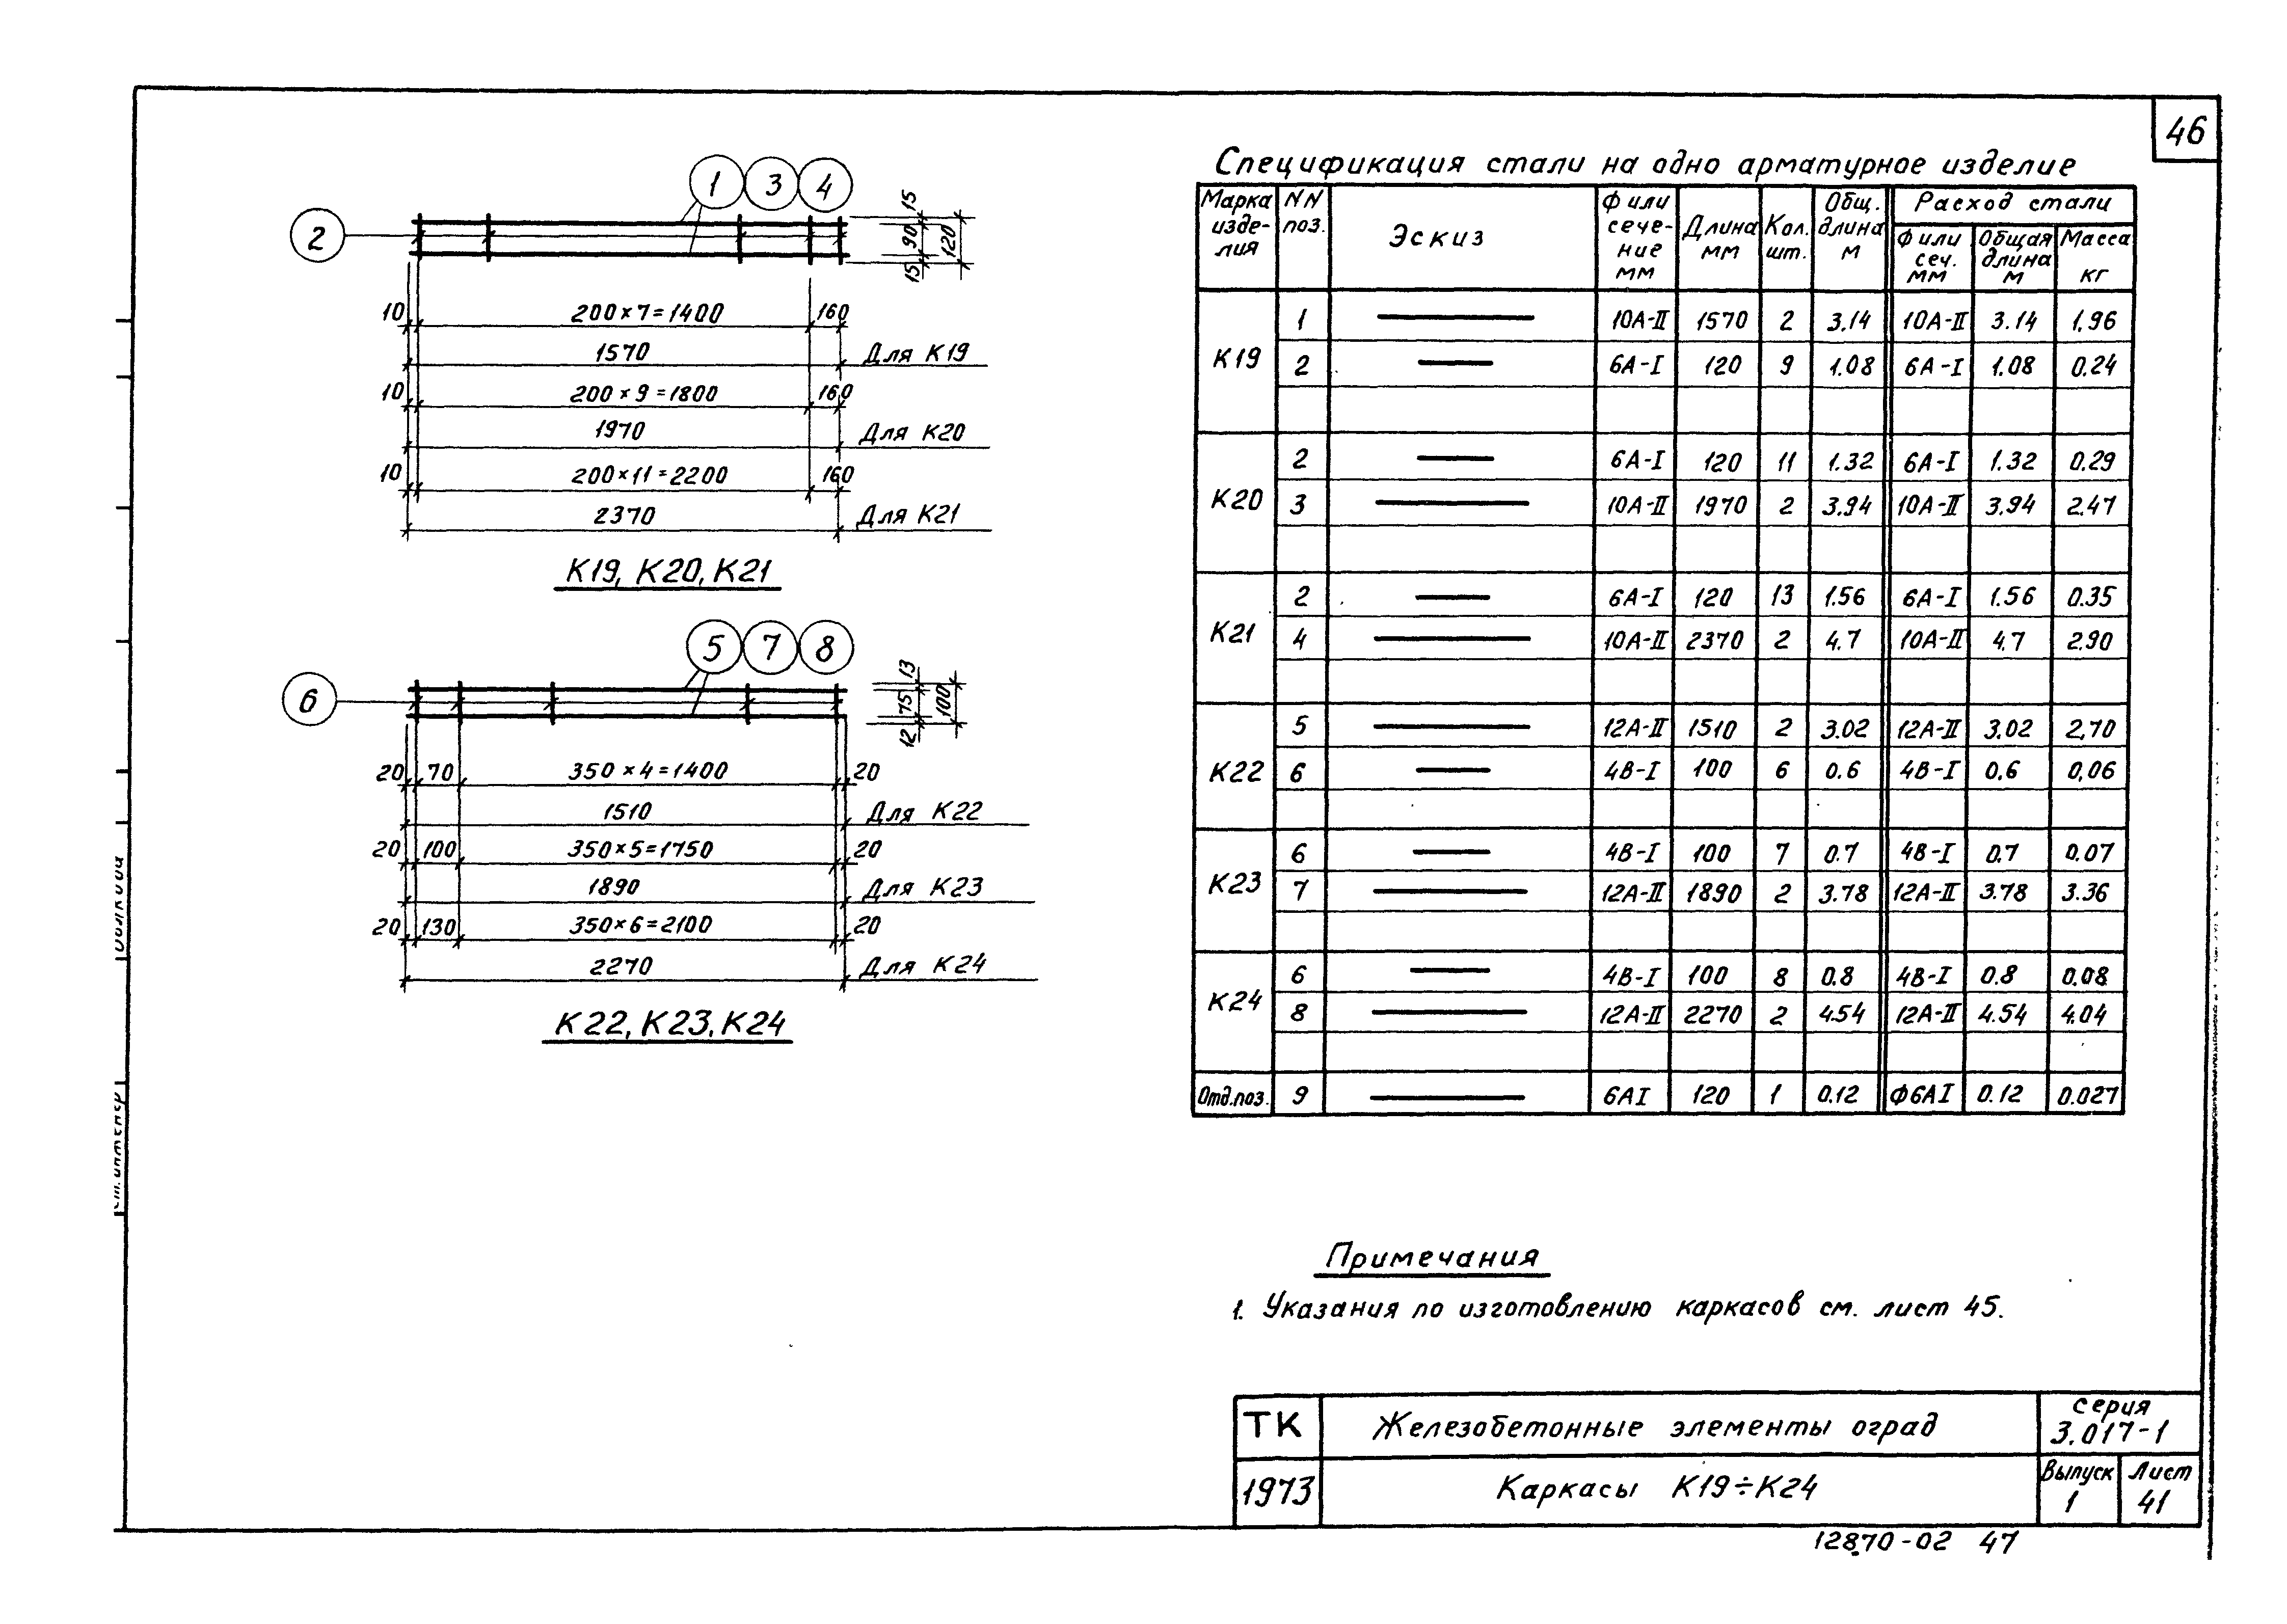 46
1 3 4
2
15
90
120
15
10 200×7=1400 160
1570 Для К19
10 200×9=1800 160
1970 Для К20
10 200×11=2200 160
2370 Для К21
К19, К20, К21
5 7 8
6
13
75
100
12
20 70 350×4=1400 20
1510 Для К22
20 100 350×5=1750 20
1890 Для К23
20 130 350×6=2100 20
2270 Для К24
К22, К23, К24
Спецификация стали на одно арматурное изделие
Марка изде-лия NN поз. Эскиз Ф или сече-ние мм Длина мм Кол. шт. Общ. длина м Расход стали
Ф или сеч. мм Общая длина м Масса кг
К19
1 10А-II 1570 2 3.14 10А-II 3.14 1.96
2 6А-I 120 9 1.08 6А-I 1.08 0.24
К20
2 6А-I 120 11 1.32 6А-I 1.32 0.29
3 10А-II 1970 2 3.94 10А-II 3.94 2.47
К21
2 6А-I 120 13 1.56 6А-I 1.56 0.35
4 10А-II 2370 2 4.7 10А-II 4.7 2.90
К22
5 12А-II 1510 2 3.02 12А-II 3.02 2,70
6 4В-I 100 6 0.6 4В-I 0.6 0,06
К23
6 4В-I 100 7 0.7 4В-I 0.7 0.07
7 12А-II 1890 2 3.78 12А-II 3.78 3.36
К24
6 4В-I 100 8 0.8 4В-I 0.8 0.08
8 12А-II 2270 2 4.54 12А-II 4.54 4.04
Отд.поз. 9 6АI 120 1 0.12 Ф6АI 0.12 0.027
Примечания
1. Указания по изготовлению каркасов см. лист 45.
ТК Железобетонные элементы оград серия 3.017-1
1973 Каркасы К19÷К24 Выпуск 1 Лист 41
12870-02 47